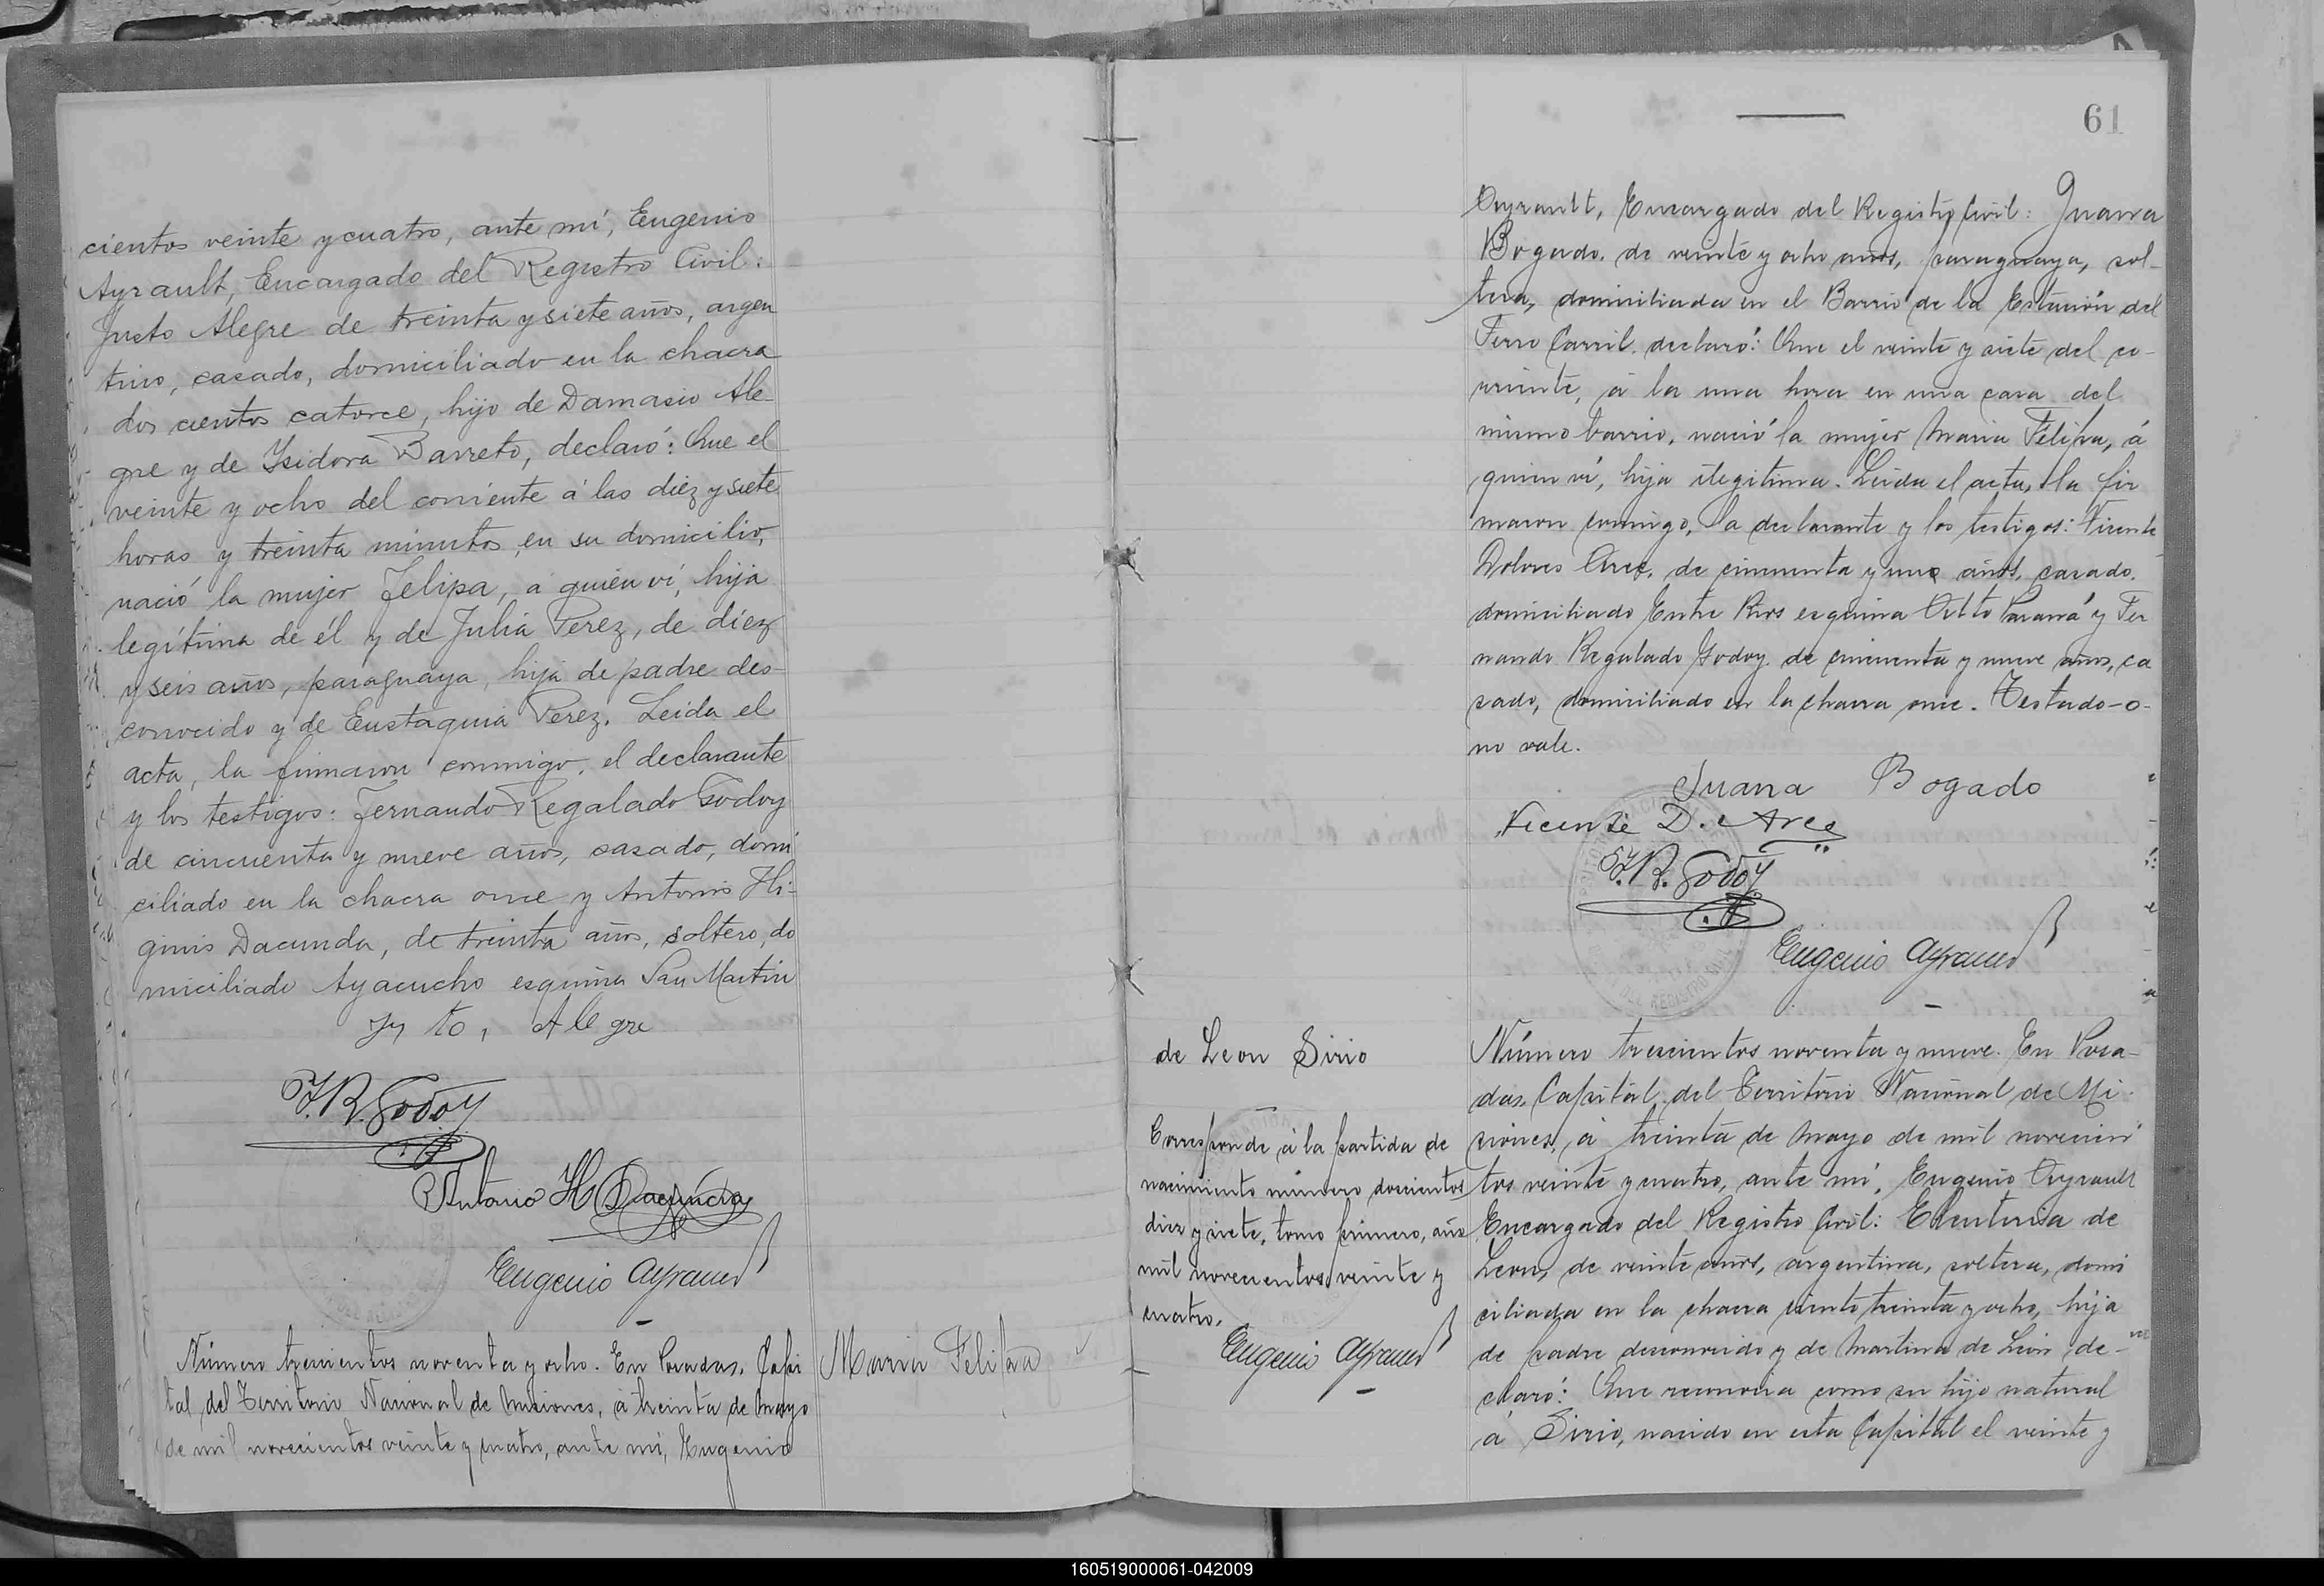 cientos veinte y cuatro, ante mí, Eugenio
Ayrault, Encargado del Registro Civil:
Justo Alegre de treinta y siete años, argen
tino, casado, domiciliado en la chacra
dos cientos catorce, hijo de Damasio Ale-
gre y de Ysidora Barreto, declaró: Que el
veinte y ocho del corriente á las diez y siete
horas y treinta minutos, en su domicilio,
nació la mujer Felipa, á quien ví, hija
legítima de él y de Julia Perez, de diez
y seis años, paraguaya, hija de padre des-
conocido y de Eustaquia Perez. Leida el
acta, la firmaron conmigo, el declarante
y los testigos: Fernando Regalado Godoy
de cincuenta y nueve años, casado, domi
ciliado en la chacra once y Antonio Hi-
ginio Dacunda, de treinta años, soltero, do
miciliado Ayacucho esquina San Martin
Alegre
F.R. Godoy
Antonio H Dacunda
Eugenio Ayrault
Número trescientos noventa y ocho. En Posadas, Capi
tal del Territorio Nacional de Misiones, á treinta de Mayo
de mil novecientos veinte y cuatro, ante mí, Eugenio
Maria Felipa
61
Ayrault, Encargado del Registro Civil: Juana
Bogado, de veinte y ocho años, paraguaya, sol-
tera, domiciliada en el Barrio de la Estación del
Ferro Carril, declaró: Que el veinte y siete del co-
rriente, á la una hora en una casa del
mismo barrio, nació la mujer Maria Felipa, á
quien ví, hija ilegitima. Leida el acta, la fir
maron conmigo, la declarante y los testigos: Vicente
Dolores Arce, de cincuenta y uno años, casado,
domiciliado Entre Rios esquina Alto Paraná y Fer
nando Regalado Godoy de cincuenta y nueve años, ca
sado, domiciliado en la chacra once. Testado-o-
no vale.
Juana Bogado
Vicente D. Arce
F.R. Godoy
Eugenio Ayrault
de Leon Sirio
Corresponde á la partida de
nacimiento número doscientos
diez y siete, tomo primero, año
mil novecientos veinte y
cuatro.
Eugenio Ayrault
Número trescientos noventa y nueve. En Posa-
das, Capital del Territorio Nacional de Mi-
siones, á treinta de Mayo de mil novecien
tos veinte y cuatro, ante mí, Eugenio Ayrault
Encargado del Registro Civil: Eleuteria de
Leon, de veinte años, argentina, soltera, domi
ciliada en la chacra ciento treinta y ocho, hija
de padre desconocido y de Martina de Leon, de-
claró: Que reconocia como su hijo natural
á Sirio, nacido en esta Capital el veinte y
160519000061-042009